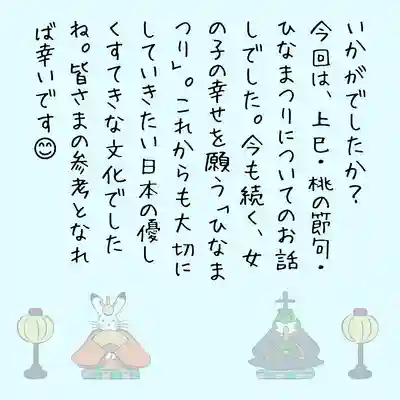 いかがでしたか?
今回は、上巳・桃の節句・
ひなまつりについてのお話
しでした。今も続く、女
の子の幸せを願う「ひなま
つり」。これからも大切に
していきたい日本の優し
くすてきな文化でした
ね。皆さまの参考となれ
ば幸いです😊